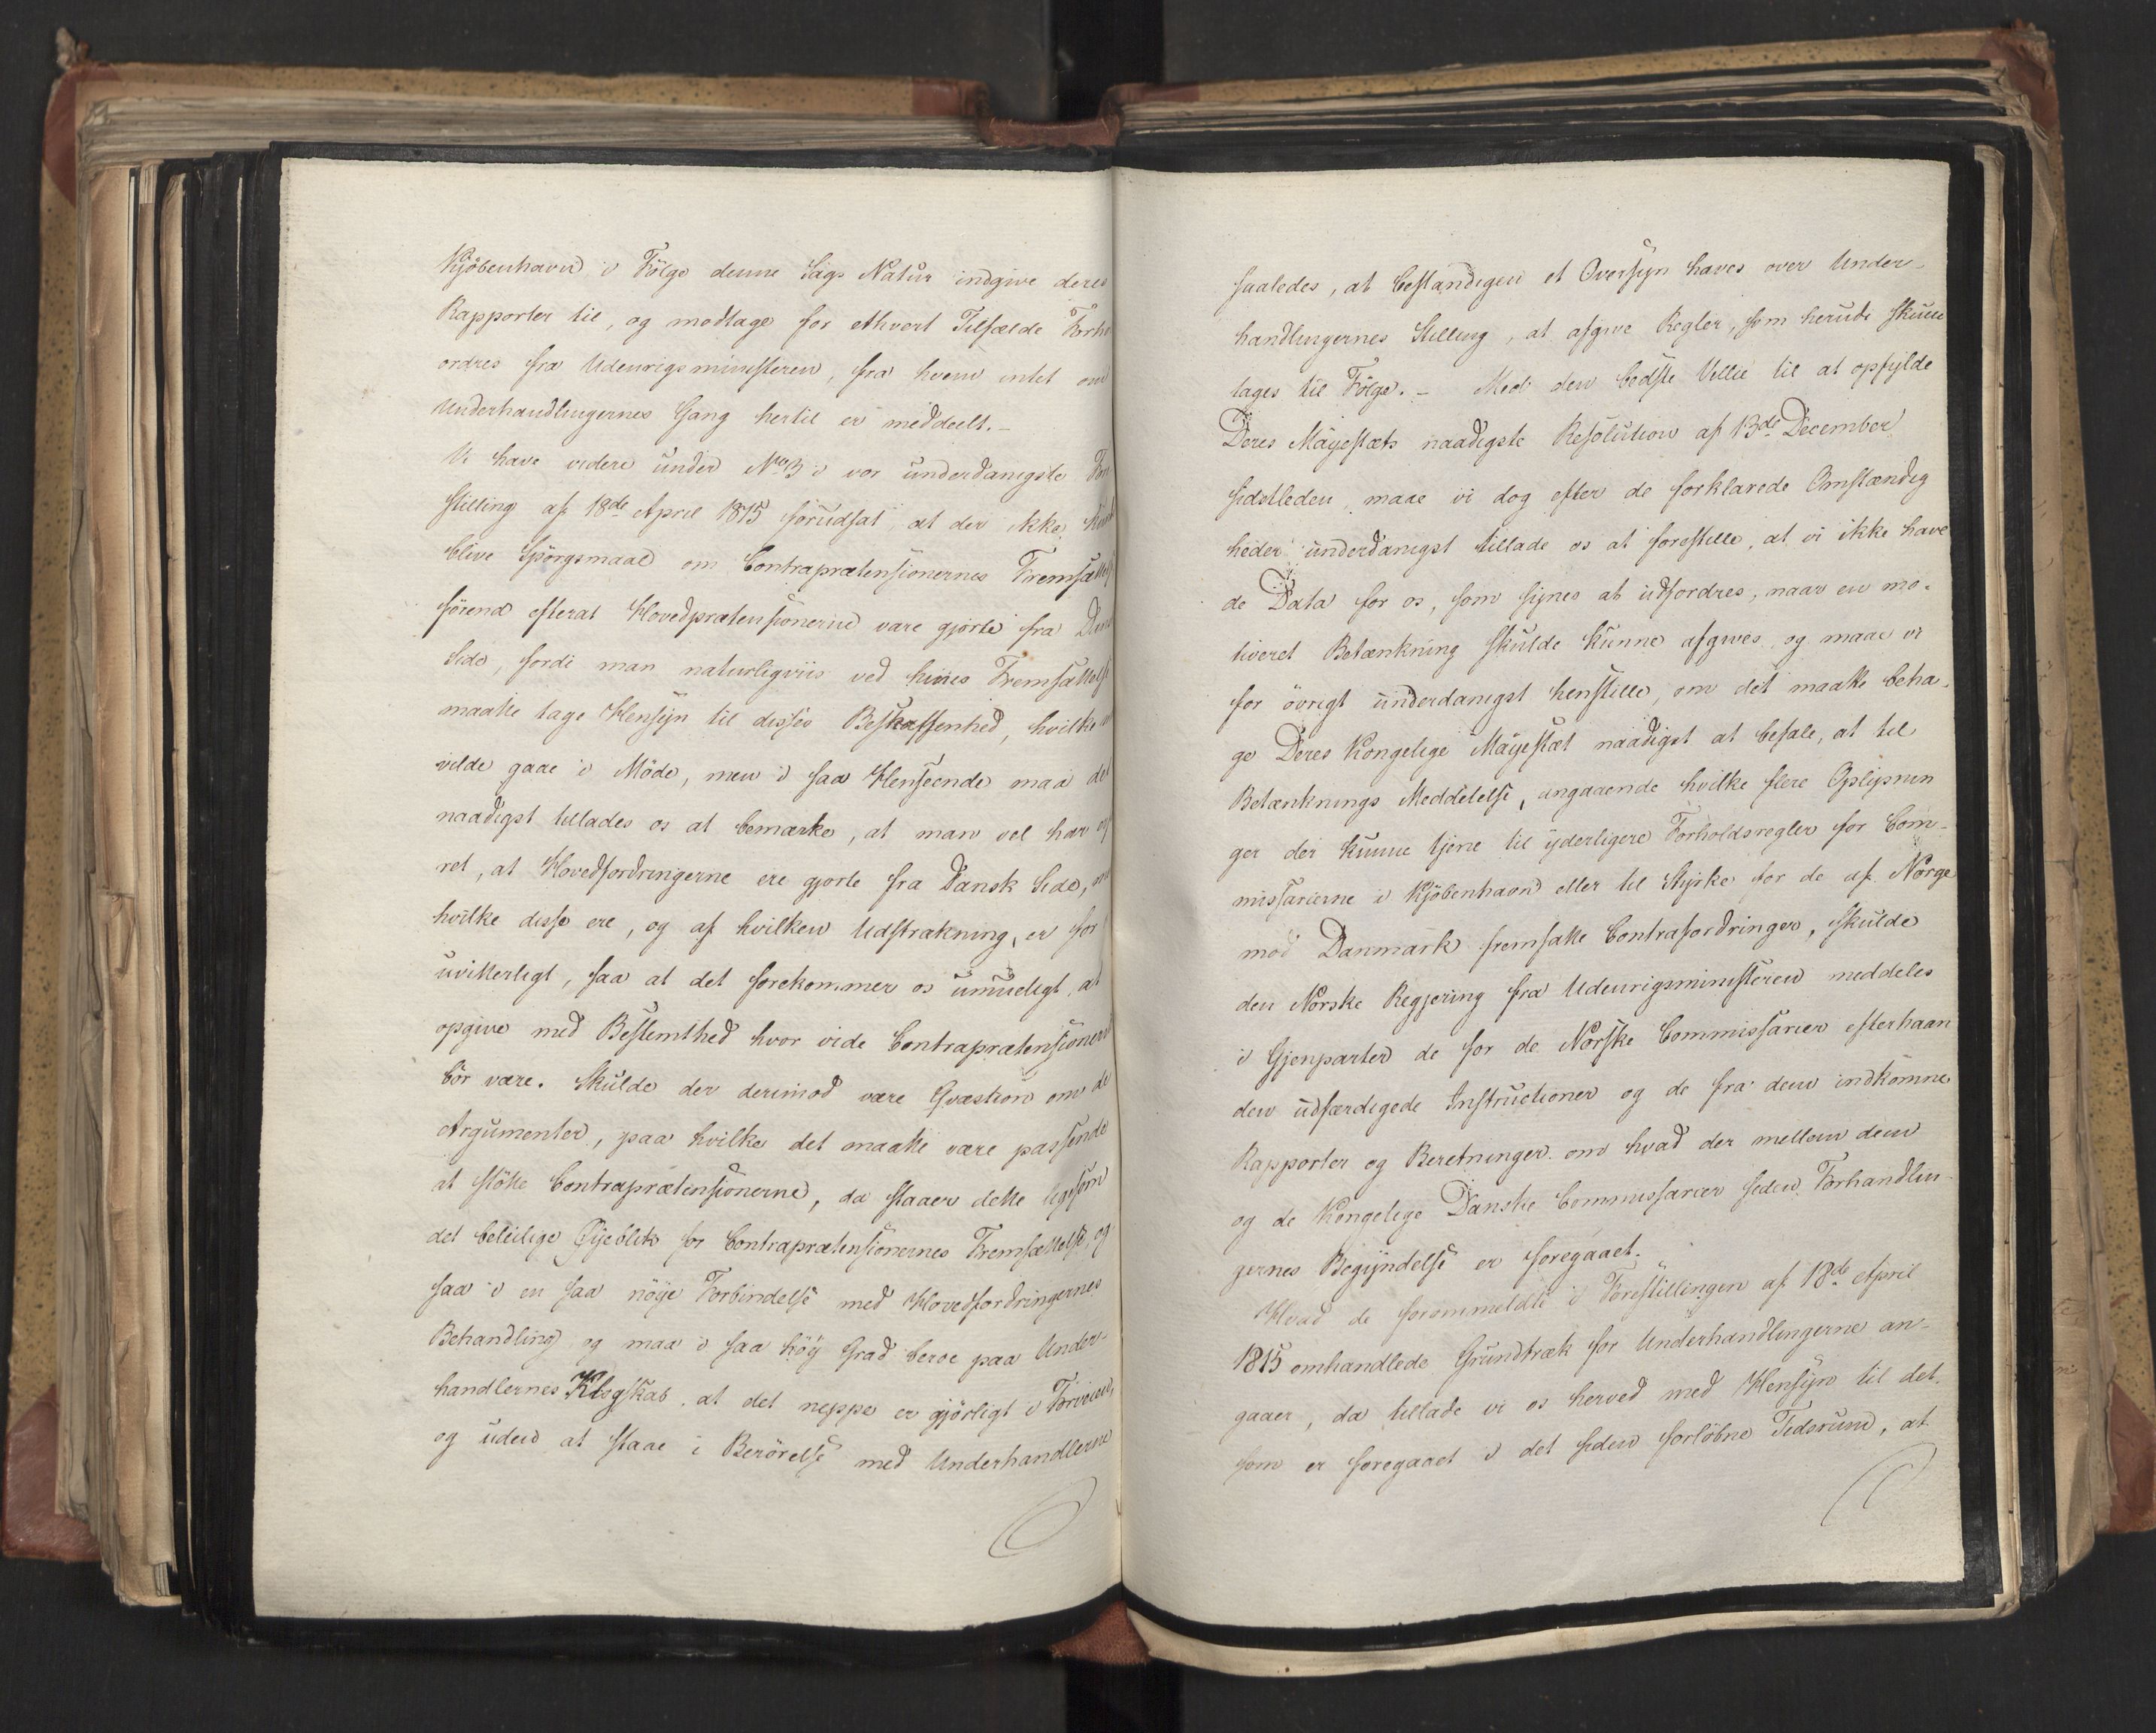 Kjöbenhavn i Fölge denne Sags Natur indgive deres
Rapporter til, og modtage for ethvert Tilfælde Forho
ordres fra Udenrigsministeren, fra hvem intet om
Underhandlingernes Gang hertil er meddeelt.-
Vi have videre under No 3 i vor underdanigste For
stilling af 18de April 1815 forudsat, at der ikke kund
blive Spörgsmaal om Contraprætensionernes Fremsættels
förend efterat Hovedprætensionerne vare gjorte fra Dansk
Side, fordi man naturligviis ved hines Fremsættelse
maatte tage Hensyn til disses Beskaffenhed, hvilke
vilde gaae i Möde, men i saa Henseende maa det
naadigst tillades os at bemærke, at man vel har
ret, at Hovedfordringerne ere gjorte fra Dansk Side,
hvilke disse ere, og af hvilken Udstrækning, er for
uvitterligt, saa at det forekommer os umueligt, at
opgive med Bestemthed hvor vide Contraprætensionerne
bör være. Skulde der derimod være Qvæstion om de
Argumenter, paa hvilke det maatte være passende
at stötte Contraprætensionerne, da staaer dette ligesom
det beleilige Øjeblik for Contraprætensionernes Fremsættelse, og
saa i en saa nöye Forbindelse med Hovedfordringernes
Behandling og maa i saa höy Grad beroe paa Under-
handlernes Klogskab, at det neppe er gjörligt i Forveien,
og uden at staae i Berörelse med Underhandlerne
saaledes, at bestandigen et Oversyn haves over Under-
handlingernes Stilling, at afgive Regler, som herude skulle
tages til Fölge. - Med den bedste Villie til at opfylde
Deres Majestæts naadigste Resolution af 13de December
sidstleden, maae vi dog efter de forklarede Omstændig
heder underdanigst tillade os at forestille, at vi ikke have
de Data for os, som synes at udfordres, naar en mo-
tiveret Betænkning skulde kunne afgives, og maae vi
for övrigt underdanigst henstille, om det maatte beha-
ge Deres Kongelige Majestæt naadigst at befale, at til
Betænknings Meddelelse, angaaende hvilke flere Oplysnin
ger der kunne tjene til yderligere Forholdsregler for Com-
missarierne i Kjöbenhavn eller til Styrke for de af Norge
mod Danmark fremsatte Contrafordringer, skulde
den Norske Regjering fra Udenrigsministeren meddeles
i Gjenparter de for de Norske Commissarier efterhaan
den udfærdigede Instructioner og de fra dem indkomne
Rapporter og Beretninger om hvad der mellem dem
og de Kongelige Danske Commissarier siden Forhandlin-
gernes Begyndelse er foregaaet.
Hvad de forommeldte i Forestillingen af 18de April
1815 omhandlede Grundtræk for Underhandlingerne an-
gaaer, da tillade vi os herved med Hensyn til det.
som er foregaaet i det siden forløbne Tidsrum, at